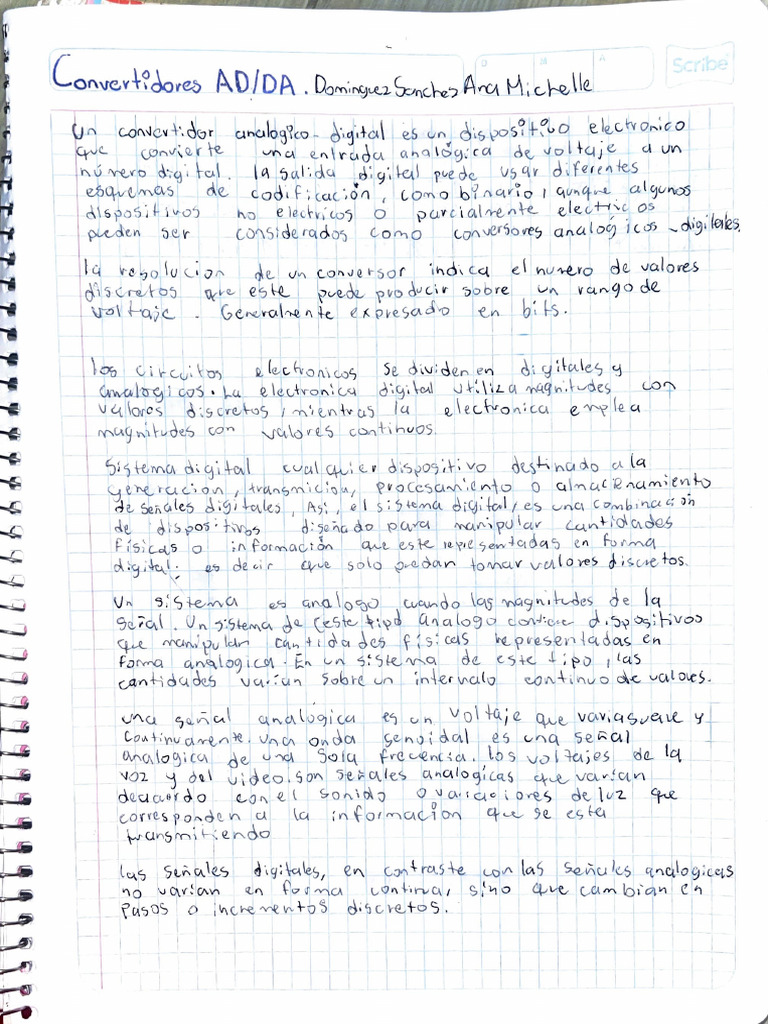 Scribe
D M A
Convertidores AD/DA. Dominguez Sanchez Ana Michelle
Un convertidor analogico-digital es un dispositivo electronico
que convierte una entrada analógica de voltaje a un
número digital. la salida digital puede usar diferentes
esquemas de codificación, como binario, aunque algunos
dispositivos no electricos o parcialmente electricos
pueden ser considerados como conversores analógicos-digitales.
la resolucion de un conversor indica el numero de valores
discretos que este puede producir sobre un rango de
voltaje. Generalmente expresado en bits.
los circuitos electronicos se dividen en digitales y
analogicos. La electronica digital utiliza magnitudes con
valores discretos, mientras la electronica emplea
magnitudes con valores continuos.
Sistema digital cualquier dispositivo destinado a la
generacion, transmicion, procesamiento o almacenamiento
de señales digitales, Asi, el sistema digital, es una combinacion
de dispositivos diseñado para manipular cantidades
físicas o información que este representadas en forma
digital; es decir que solo puedan tomar valores discretos.
Un sistema es analogo cuando las magnitudes de la
señal. Un sistema de este tipo analogo contiene dispositivos
que manipulan cantidades físicas representadas en
forma analogica. En un sistema de este tipo, las
cantidades varian sobre un intervalo continuo de valores.
una señal analógica es un voltaje que varia suave y
continuamente. una onda senoidal es una señal
analogica de una sola frecuencia. los voltajes de la
voz y del video. son señales analogicas que varian
deacuardo con el sonido o variaciones de luz que
corresponden a la informacion que se esta
transmitiendo
las señales digitales, en contraste con las señales analogicas
no varian en forma continua, sino que cambian en
pasos o incrementos discretos.